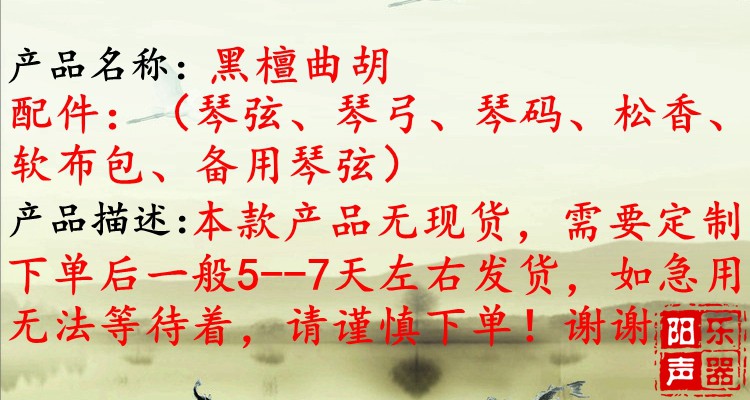 产品名称：黑檀曲胡
配件：（琴弦、琴弓、琴码、松香、
软布包、备用琴弦）
产品描述:本款产品无现货，需要定制
下单后一般5--7天左右发货，如急用
无法等待着，请谨慎下单！谢谢
阳声乐器